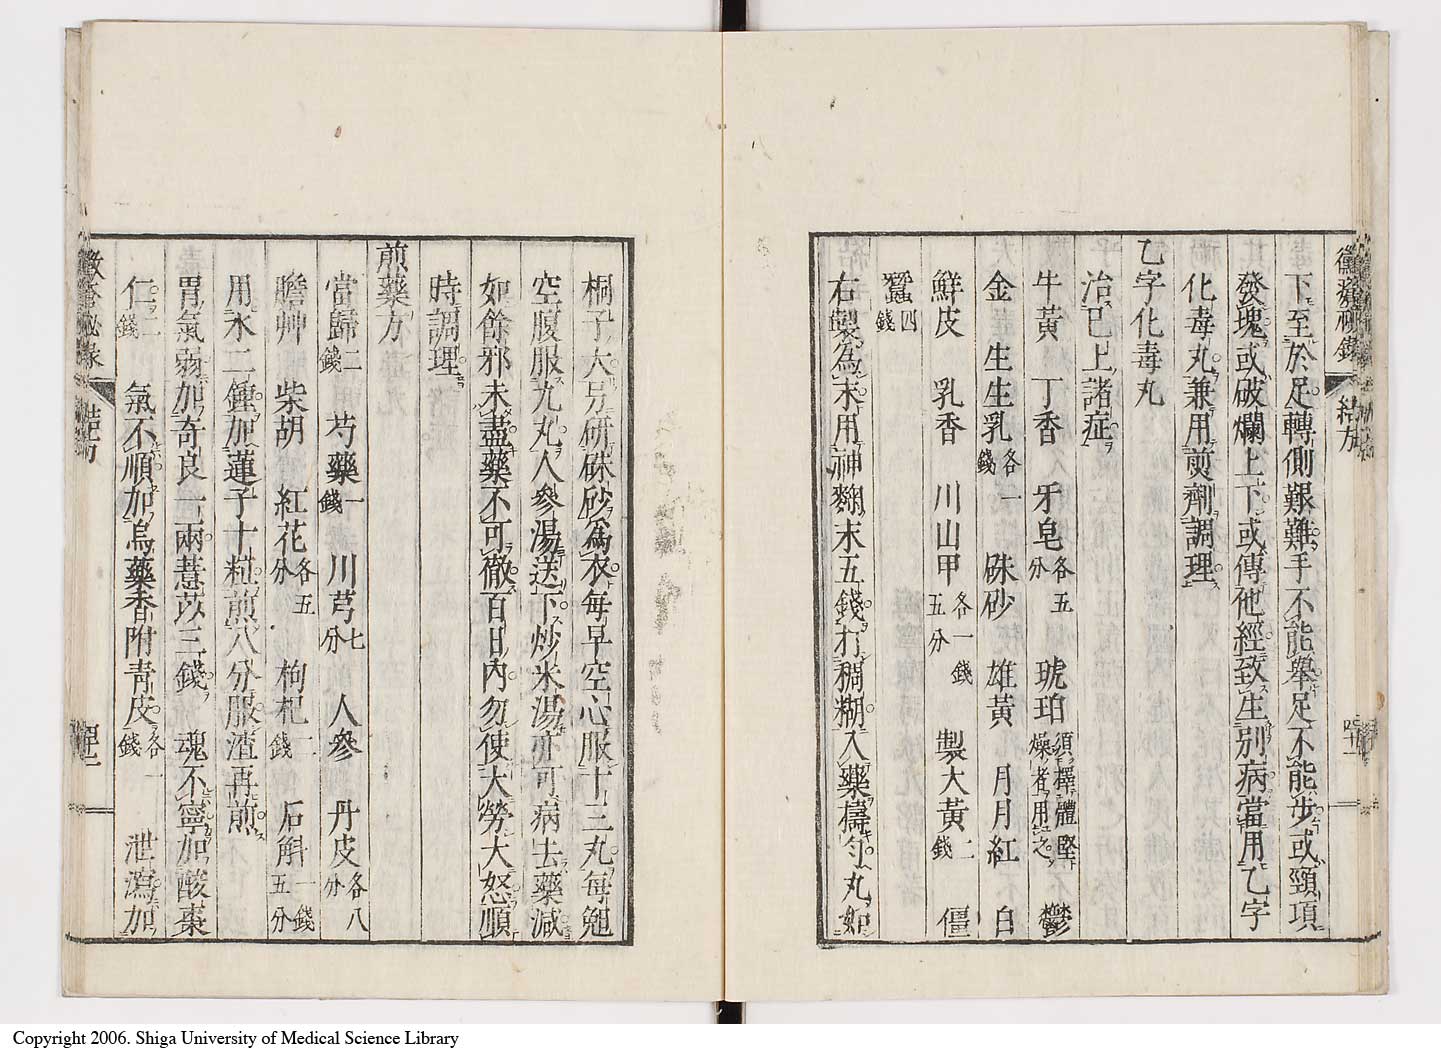 下至於足轉側艱難手不能舉足不能步或頸項
發塊或破爛上下或傳他經致生別病當用乙字
化毒丸兼用煎劑調理
乙字化毒丸
治已上諸症
牛黃 丁香 牙皂各五分 琥珀須擇體堅燥者用之 鬱
金 生生乳各一錢 硃砂 雄黃 月月紅 白
鮮皮 乳香 川山甲各一錢五分 製大黃二錢 僵
蠶四錢
右製為末用神麴末五錢打稠糊入藥擣勻丸如
桐子大另研硃砂為衣每早空心服十三丸每晚
空腹服九丸人參湯送下炒米湯亦可病去藥減
如餘邪未盡藥不可徹百日內勿使大勞大怒順
時調理
煎藥方
當歸二錢 芍藥一錢 川芎七分 人參 丹皮各八分
膽艸 柴胡 紅花各五分 枸杞二錢 石斛一錢五分
用水二鍾加蓮子十粒煎八分服渣再煎
胃氣弱加奇良一兩薏苡三錢 魂不寧加酸棗
仁二錢 氣不順加烏藥香附青皮各一錢 泄瀉加
Copyright 2006. Shiga University of Medical Science Library